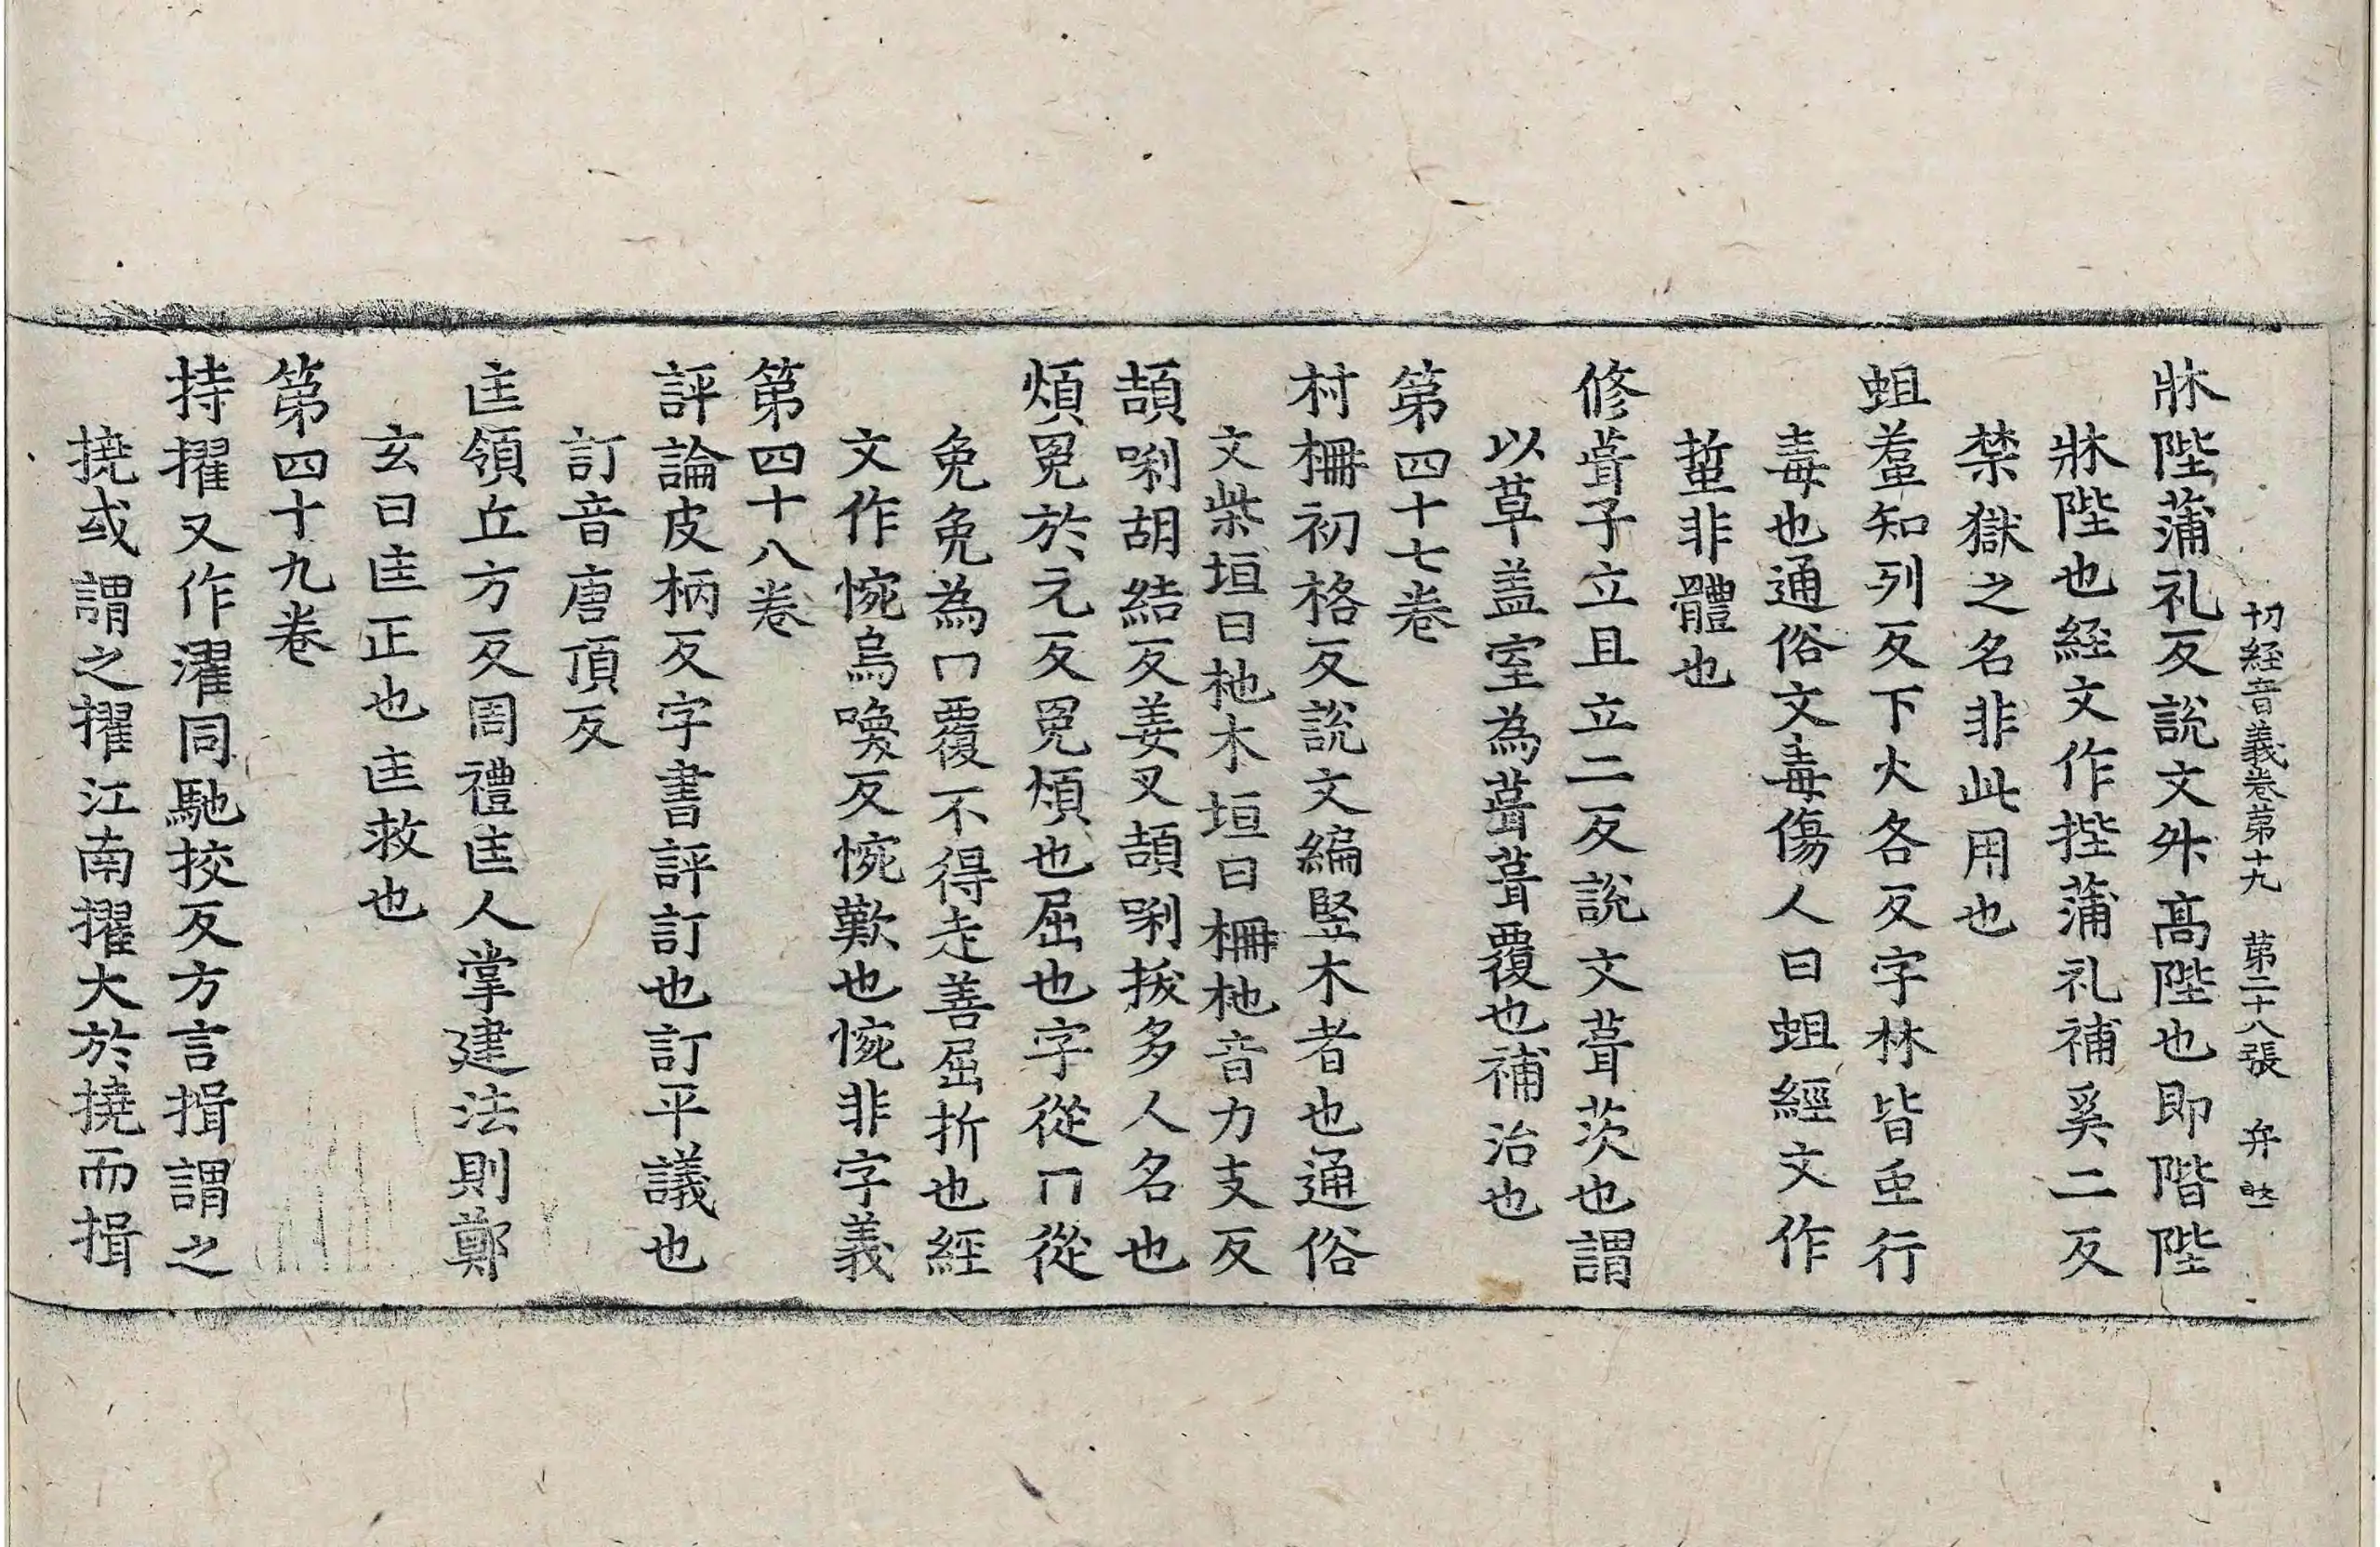 切経音義卷第十九 第二十八張 弁
牀陛蒲礼反說文升高陛也即階陛
牀陛也経文作㧏蒲礼補奚二反
禁獄之名非此用也
蛆羞知列反下火各反字林皆䖝行
毒也通俗文毒傷人曰蛆經文作
蜇非體也
修葺子立且立二反說文葺茨也謂
以草盖室為葺葺覆也補治也
第四十七卷
村柵初格反說文編竪木者也通俗
文柴垣曰杝木垣曰柵杝音力支反
頡唎胡結反姜叉頡唎拔多人名也
煩冤於元反冤煩也屈也字從冂從
免免為冂覆不得走善屈折也經
文作惋烏喚反惋歎也惋非字義
第四十八卷
評論皮柄反字書評訂也訂平議也
訂音唐頂反
匡領丘方反周禮匡人掌建法則鄭
玄曰匡正也匡救也
第四十九卷
持擢又作濯同馳挍反方言揖謂之
撓或謂之擢江南擢大於撓而揖